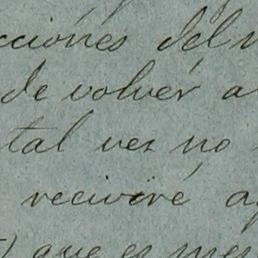 cciones del
de volver a
tal vez no
reciviré a
que es me